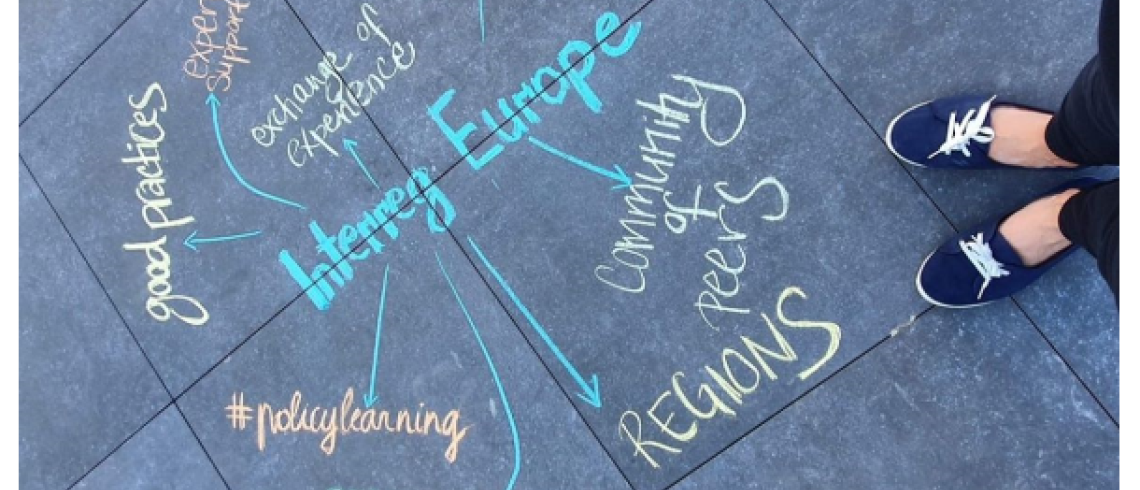 expert
support
exchange of
experience
good practices
Interreg Europe
Community
of
peers
REGIONS
#policylearning